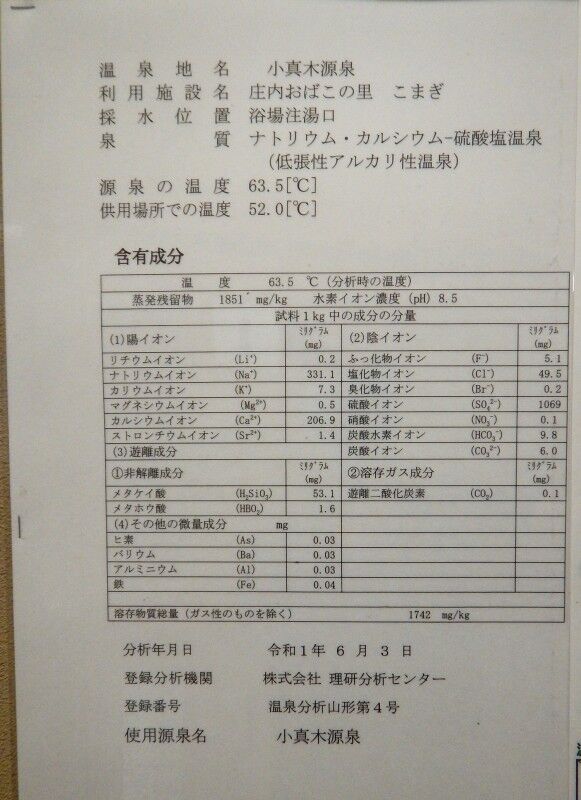 温泉地名 小真木源泉
利用施設名 庄内おばこの里 こまぎ
採水位置 浴場注湯口
泉質 ナトリウム・カルシウム-硫酸塩温泉
(低張性アルカリ性温泉)
源泉の温度 63.5[℃]
供用場所での温度 52.0[℃]
含有成分
温度 63.5 ℃ (分析時の温度)
蒸発残留物 1851 mg/kg 水素イオン濃度 (pH) 8.5
試料1kg中の成分の分量
(1)陽イオン ミリグラム (mg) (2)陰イオン ミリグラム (mg)
リチウムイオン (Li⁺) 0.2 ふっ化物イオン (F⁻) 5.1
ナトリウムイオン (Na⁺) 331.1 塩化物イオン (Cl⁻) 49.5
カリウムイオン (K⁺) 7.3 臭化物イオン (Br⁻) 0.2
マグネシウムイオン (Mg²⁺) 0.5 硫酸イオン (SO₄²⁻) 1069
カルシウムイオン (Ca²⁺) 206.9 硝酸イオン (NO₃⁻) 0.1
ストロンチウムイオン (Sr²⁺) 1.4 炭酸水素イオン (HCO₃⁻) 9.8
(3)遊離成分 炭酸イオン (CO₃²⁻) 6.0
①非解離成分 ミリグラム (mg) ②溶存ガス成分 ミリグラム (mg)
メタケイ酸 (H₂SiO₃) 53.1 遊離二酸化炭素 (CO₂) 0.1
メタホウ酸 (HBO₂) 1.6
(4)その他の微量成分 mg
ヒ素 (As) 0.03
バリウム (Ba) 0.03
アルミニウム (Al) 0.03
鉄 (Fe) 0.04
溶存物質総量 (ガス性のものを除く) 1742 mg/kg
分析年月日 令和1年 6月 3日
登録分析機関 株式会社 理研分析センター
登録番号 温泉分析山形第4号
使用源泉名 小真木源泉